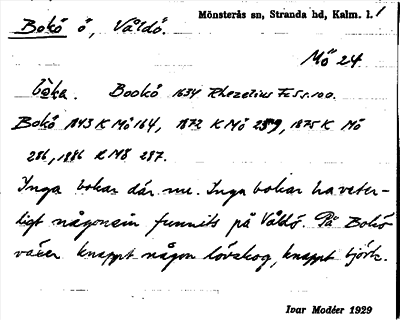 Bokö ö, Våldö. Mönsterås sn, Stranda hd, Kalm. l.
Mö 24
bo̱ka. Bookö 1634 Rhezelius F5 s. 100.
Bokö 1843 K Mö 164, 1872 K Mö 259, 1875 K Mö
286, 1886 K Mö 287.
Inga bokar där nu. Inga bokar ha veter-
ligt någonsin funnits på Våldö. På Bokö
växer knappt någon lövskog, knappt björk.
Ivar Modéer 1929